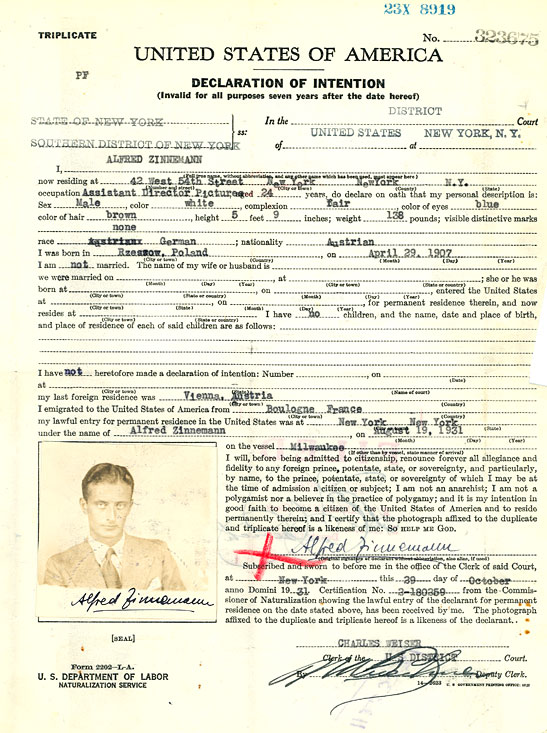 23X 8919
TRIPLICATE
No. 323675
UNITED STATES OF AMERICA
PF
DECLARATION OF INTENTION
(Invalid for all purposes seven years after the date hereof)
STATE OF NEW YORK
SOUTHERN DISTRICT OF NEW YORK
ss:
In the DISTRICT Court
of UNITED STATES at NEW YORK, N. Y.
I, ALFRED ZINNEMANN
(Full true name, without abbreviation, and any other name which has been used, must appear here)
now residing at 42 West 54th Street New York NewYork N.Y.
(Number and street) (City or town) (County) (State)
occupation Assistant Director Pictures aged 24 years, do declare on oath that my personal description is:
Sex Male, color white, complexion fair, color of eyes blue
color of hair brown, height 5 feet 9 inches; weight 138 pounds; visible distinctive marks
none
race German; nationality Austrian
I was born in Rzeszow, Poland, on April 29. 1907
(City or town) (Country) (Month) (Day) (Year)
I am not married. The name of my wife or husband is
we were married on , at ; she or he was
(Month) (Day) (Year) (City or town) (State or country)
born at , on , entered the United States
(City or town) (State or country) (Month) (Day) (Year)
at , on , for permanent residence therein, and now
(City or town) (State) (Month) (Day) (Year)
resides at I have no children, and the name, date and place of birth,
(City or town) (State or country)
and place of residence of each of said children are as follows:
I have not heretofore made a declaration of intention: Number , on
(Date)
at
(City or town) (State) (Name of court)
my last foreign residence was Vienna, Austria
(City or town) (Country)
I emigrated to the United States of America from Boulogne France
(City or town) (Country)
my lawful entry for permanent residence in the United States was at New York New York
(City or town) (State)
under the name of Alfred Zinnemann, on August 19, 1931
(Month) (Day) (Year)
on the vessel Milwaukee
(If other than by vessel, state manner of arrival)
I will, before being admitted to citizenship, renounce forever all allegiance and
fidelity to any foreign prince, potentate, state, or sovereignty, and particularly,
by name, to the prince, potentate, state, or sovereignty of which I may be at
the time of admission a citizen or subject; I am not an anarchist; I am not a
polygamist nor a believer in the practice of polygamy; and it is my intention in
good faith to become a citizen of the United States of America and to reside
permanently therein; and I certify that the photograph affixed to the duplicate
and triplicate hereof is a likeness of me: SO HELP ME GOD.
Alfred Zinnemann
(Original signature of declarant without abbreviation, also alias, if used)
Subscribed and sworn to before me in the office of the Clerk of said Court,
at New York this 29 day of October
anno Domini 1931 Certification No. 2-180259 from the Commis-
sioner of Naturalization showing the lawful entry of the declarant for permanent
residence on the date stated above, has been received by me. The photograph
affixed to the duplicate and triplicate hereof is a likeness of the declarant.
Alfred Zinnemann
[SEAL]
CHARLES WEISER
Clerk of the U.S DISTRICT Court.
By Deputy Clerk.
Form 2202-L-A.
U. S. DEPARTMENT OF LABOR
NATURALIZATION SERVICE
14-2623 U. S. GOVERNMENT PRINTING OFFICE: